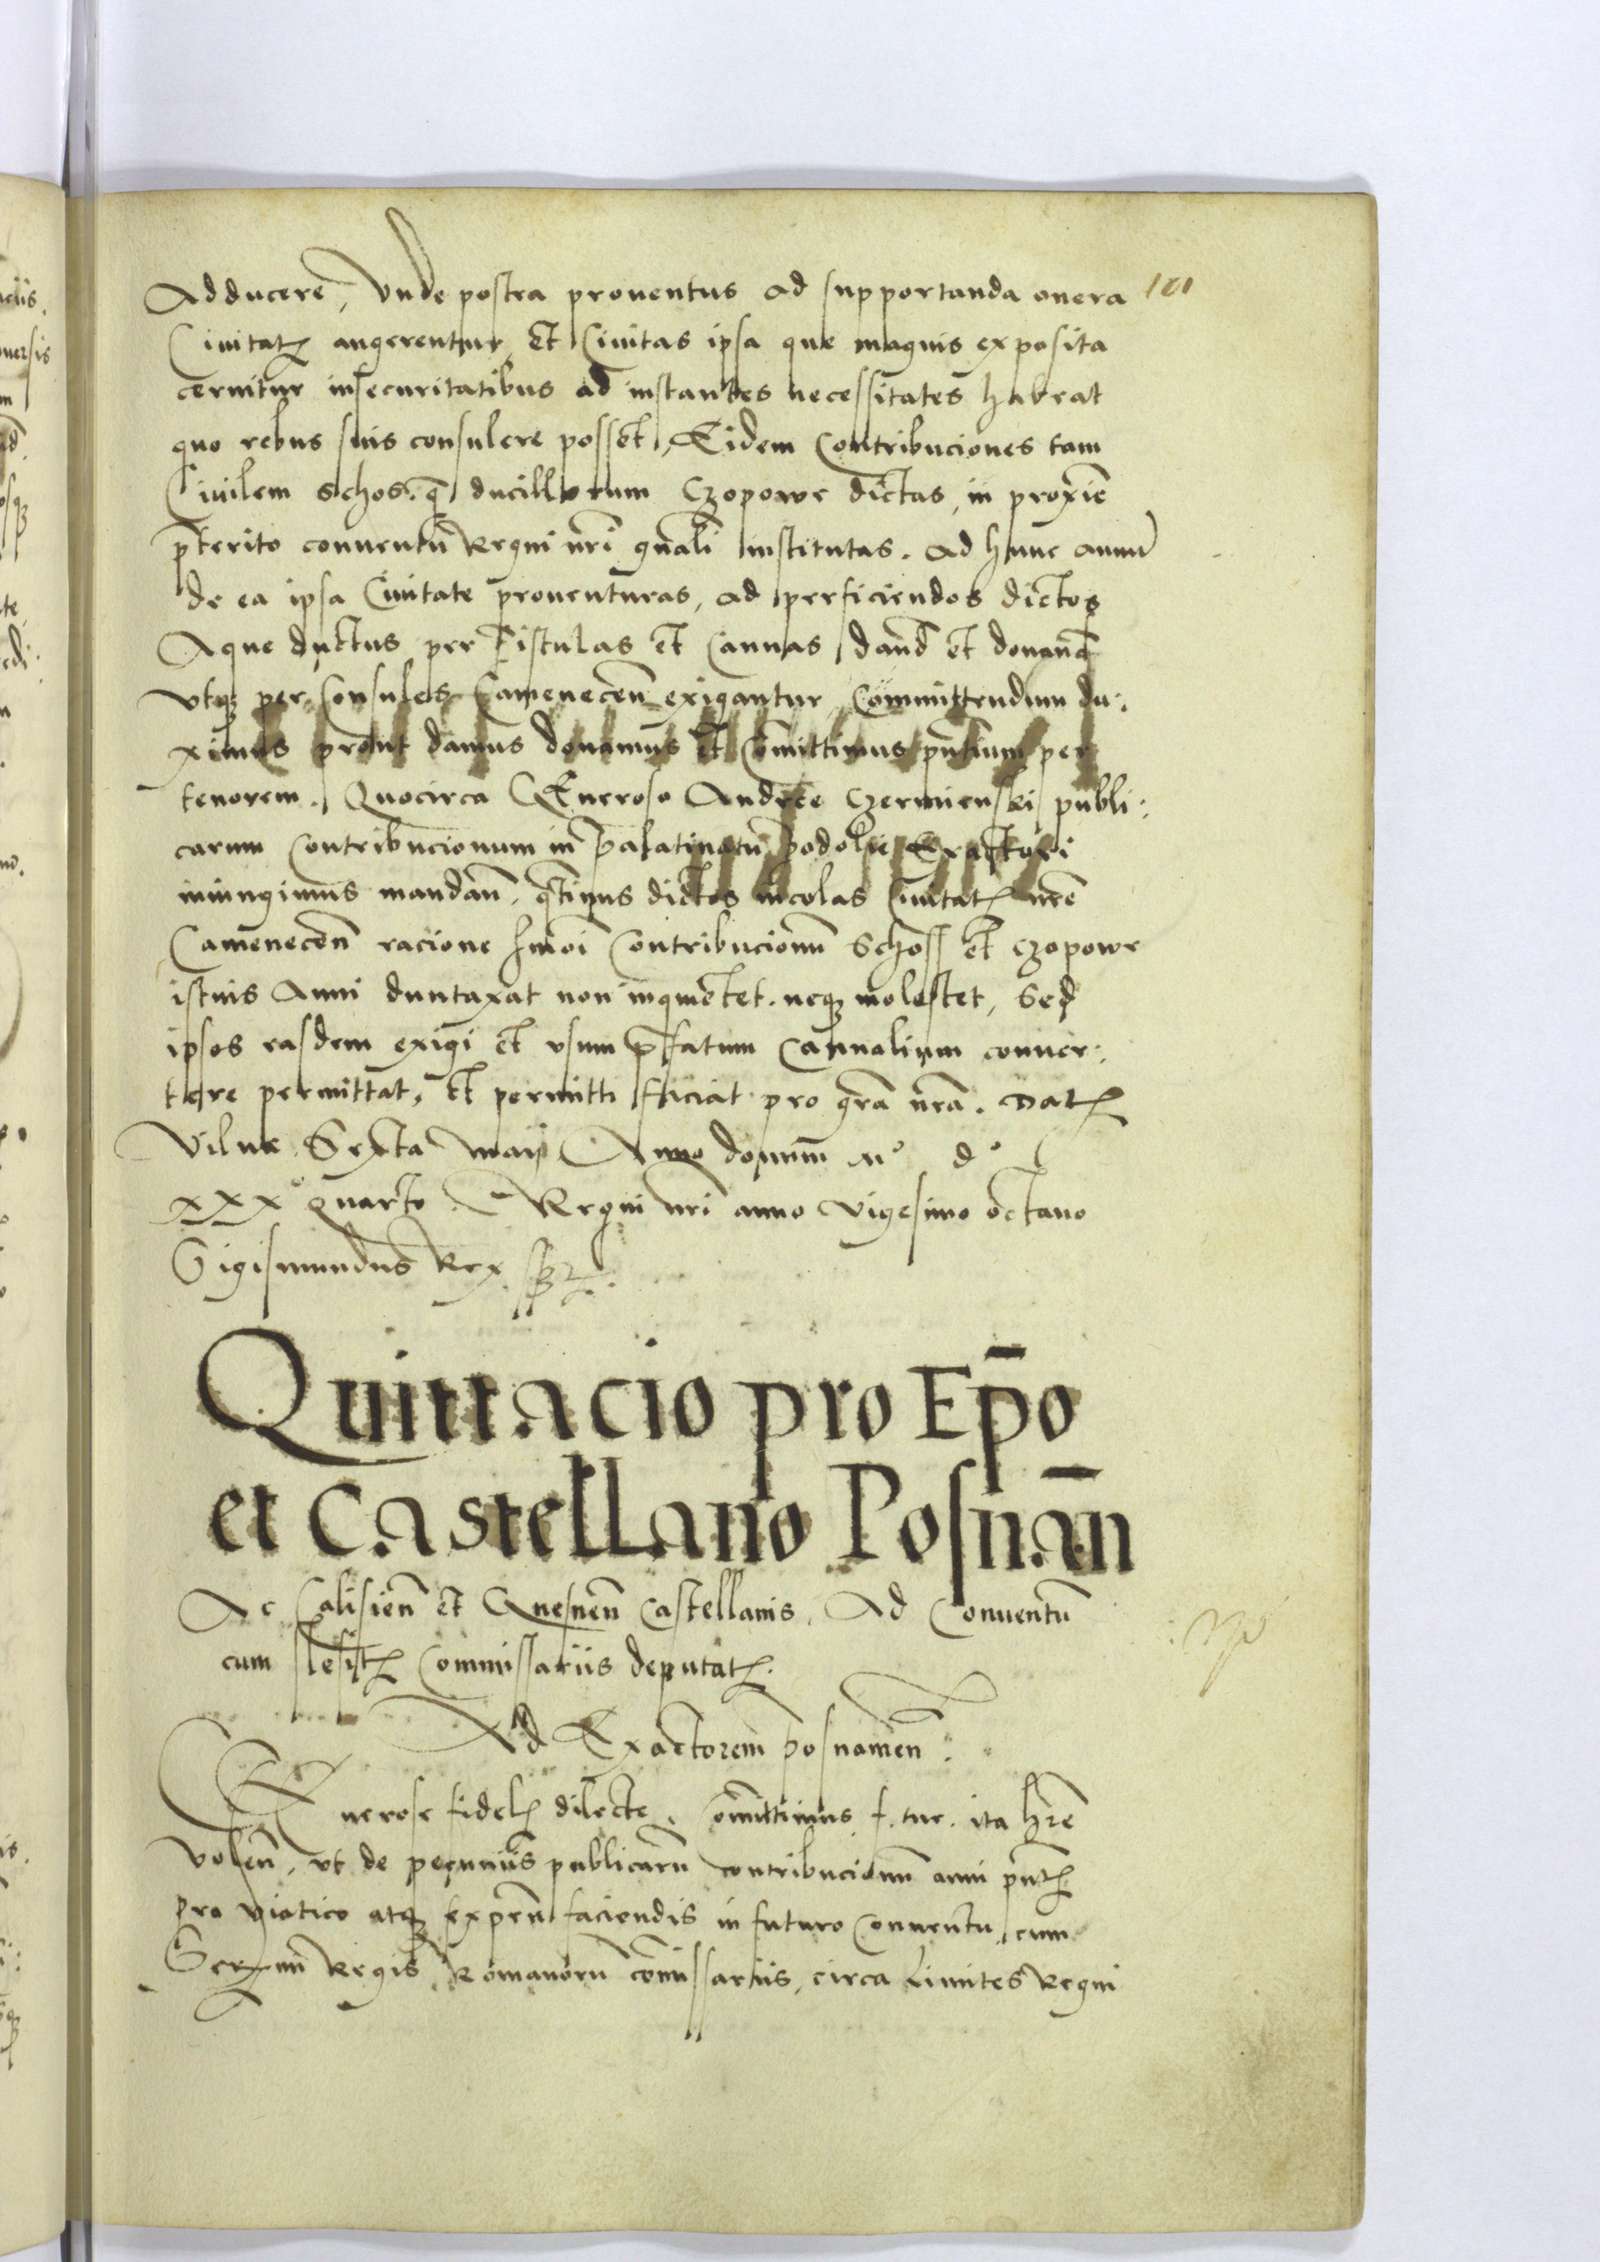 101
Adducere, Vnde postea prouentus ad supportanda onera
Ciuitatis augerentur, Et Ciuitas ipsa que magnis exposita
cernitur insecuritatibus ad instantes necessitates habeat
quo rebus suis consulere posset, Eidem Contribuciones tam
Ciuilem schos, q̄ ducillorum Czopowe dictas, in proxīe
p̄terito conuentū Regni nr̄i gn̄ali institutas. ad hunc annū
de ea ipsa Ciuitate prouenturas, ad perficiendos dictos
Aque ductus per Fistulas et Cannas dand̄ et donand̄
vtq₃ per Consules Camenecen̄ exigantur, Committendum du:
ximus prout damus donamus et Com̄ittimus pn̄tium per
tenorem. Quocirca Generoso Andree Czermienski publi:
carum Contribucionum in Palatinatu Podolie Exactori
iniungimus mandan̄, q̄tinus dictos incolas Ciuitatis nr̄e
Camenecen̄ racione hmōi Contribucionū Schoss et czopowe
istius Anni duntaxat non inquietet. neq₃ molestet, Sed
ipsos easdem exigi et vsum p̄fatum Cannalium conuer:
tere permittat, Et permitti faciat pro gr̄a nr̄a. Datis
Vilne Sexta Maij Anno domini M° d°
xxx° quarto. Regni nr̄i anno vigesimo octauo
Sigismundus Rex
Quittacio pro Ep̄o
et Castellano Posnan̄
Ac Calisien̄ et Gnesnen̄ Castellanis, Ad Conuentū
cum Slesitis Commissariis deputatis.
Ad Exactorem Posnanien̄.
Generose fidelis dilecte. Com̄ittimus f. tue. ita hr̄e
volen̄, vt de pecuniis publicarū contribucionū anni pn̄tis
pro viatico atq₃ expen̄ faciendis in futuro Conuentu, cum
Seren̄mi Regis Romanorū com̄issariis, circa Limites Regni